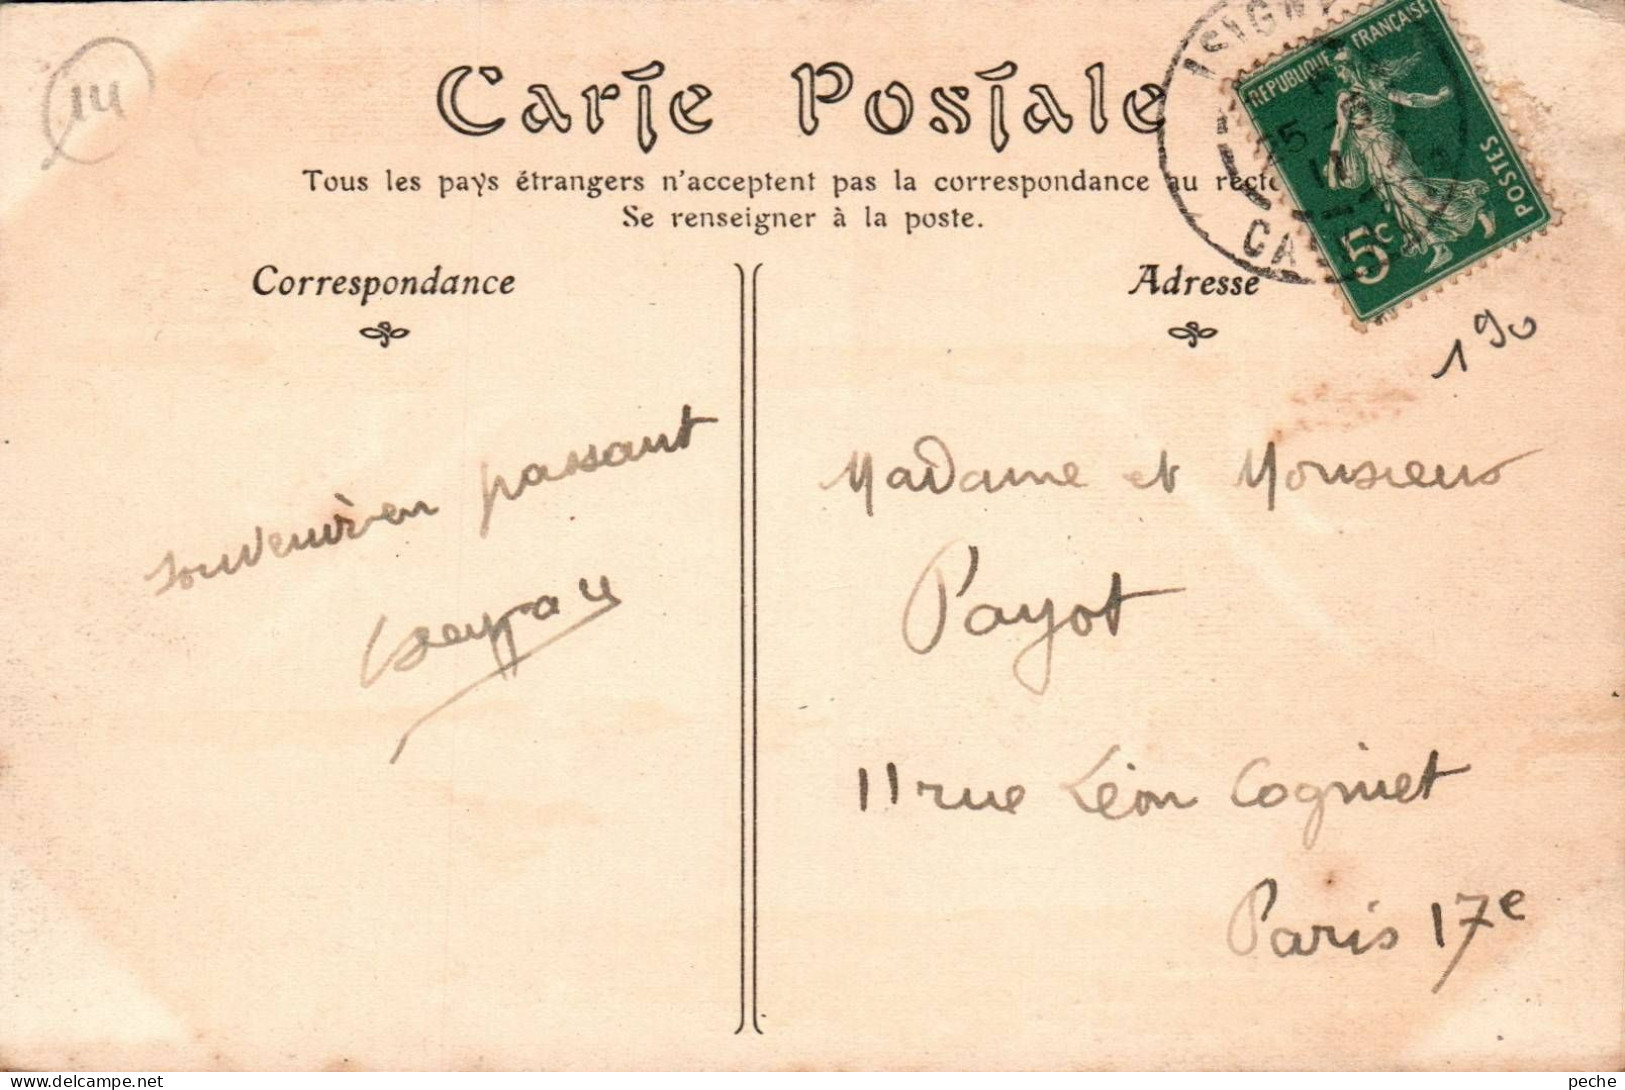 14
Carte Postale
ISIGNY
CALVADOS
REPUBLIQUE FRANÇAISE
POSTES
5c
Tous les pays étrangers n'acceptent pas la correspondance au recto
Se renseigner à la poste.
Correspondance
Adresse
190
souvenir en passant
Madame et Monsieur
Payot
11 rue Léon Cogniet
Paris 17e
peche